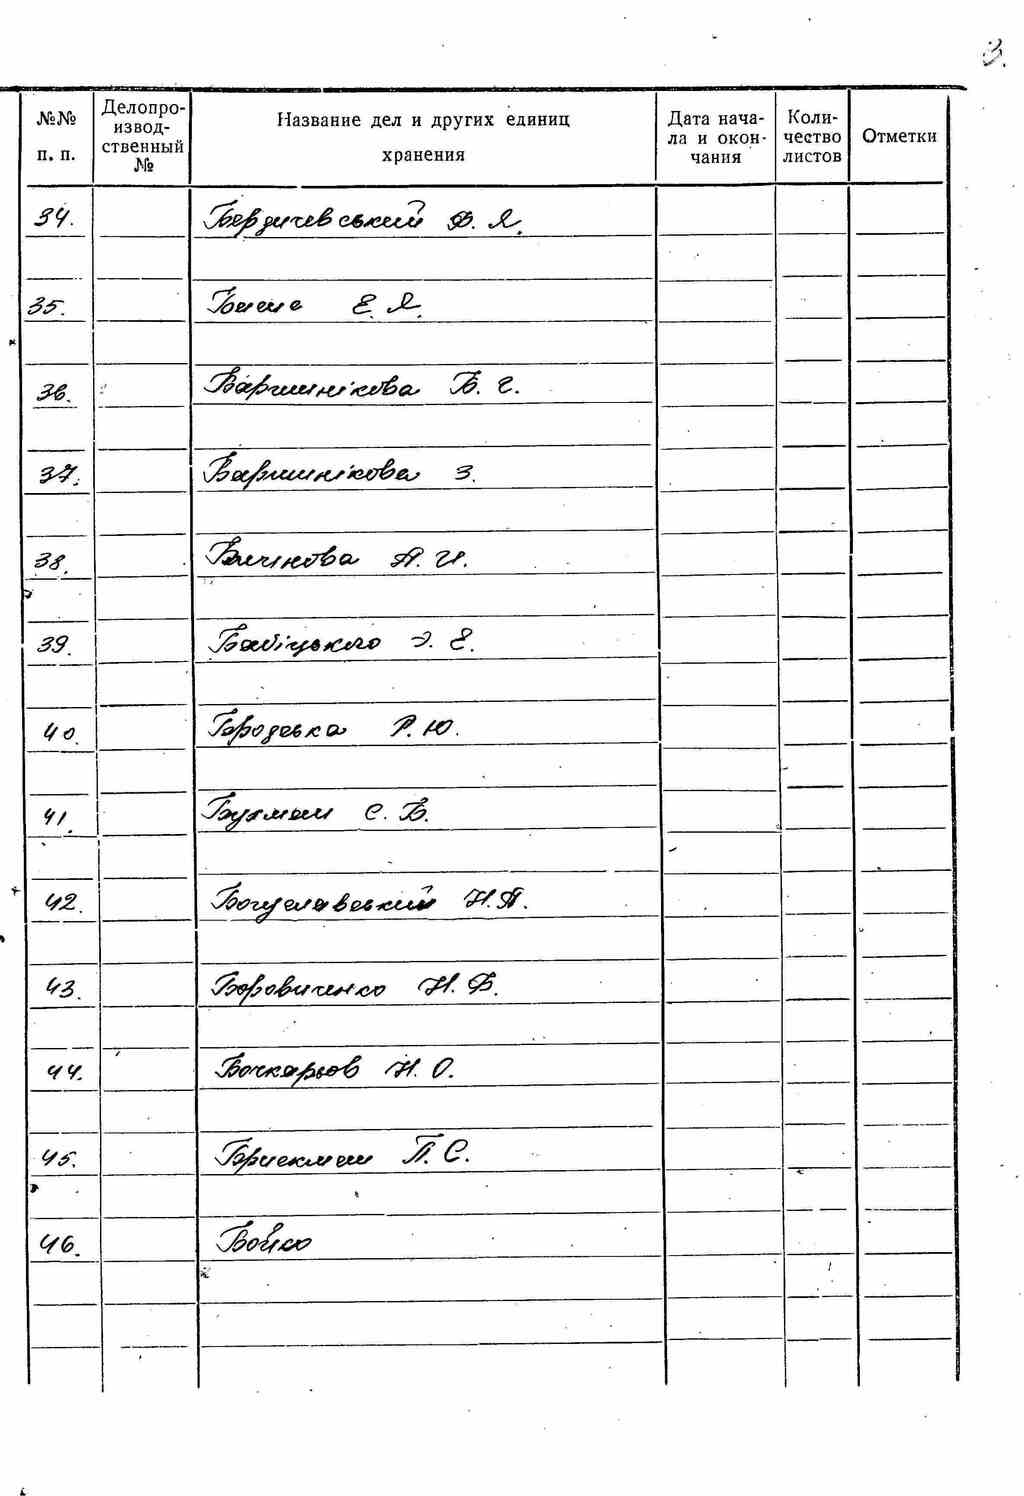 3.
№№ п. п.
Делопро-
извод-
ственный
№
Название дел и других единиц
хранения
Дата нача-
ла и окон-
чания
Коли-
чество
листов
Отметки
34. Бердичевський Ф. Я.
35. Е. Я.
36. Б. Г.
37. З.
38. А. И.
39. Бабіцького Э. Е.
40. Городська Р. Ю.
41. С. Б.
42. Богуславський Н. А.
43. Боровиченко Н. Ф.
44. Бочкарьов Н. О.
45. П. С.
46. Бойко